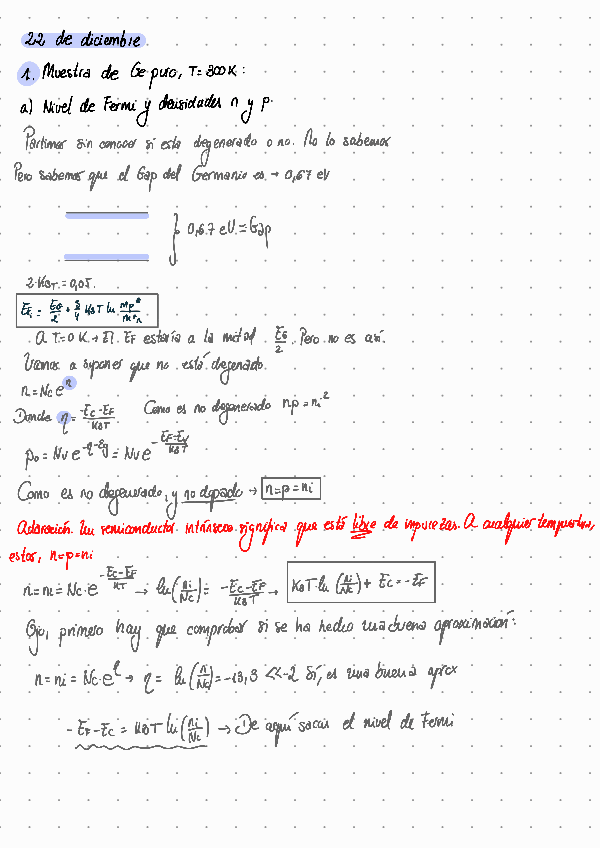 22 de diciembre
1. Muestra de Ge puro, T=300K:
a) Nivel de Fermi y densidades n y p.
Partimos sin conocer si esta degenerado o no. No lo sabemos
Pero sabemos que el Gap del Germanio es → 0,67 eV
0,67 eV = Gap
2·K_BT = 0,05.
E_Fi = E_G/2 + 3/4 K_BT ln m_p*/m_n*
A T=0 K → El E_F estaría a la mitad E_G/2. Pero no es así.
Vamos a suponer que no está degenerado.
n = N_C e^η
Donde η = -E_C-E_F/K_BT Como es no degenerado np = n_i²
p_0 = N_V e^-η-εg = N_V e^-E_F-E_V/K_BT
Como es no degenerado, y no dopado → n=p=n_i
Aclaración: Un semiconductor intrínseco significa que está libre de impurezas. A cualquier temperatura,
estas, n=p=n_i
n = n_i = N_C·e^-E_C-E_F/KT → ln(n_i/N_C) = -E_C-E_F/K_BT → K_BT·ln(n_i/N_C) + E_C = -E_F
Ojo, primero hay que comprobar si se ha hecho una buena aproximación:
n = n_i = N_C·e^η → η = ln(n_i/N_C) = -13,3 << -2 Sí, es una buena aprox
-E_F-E_C = K_BT ln(n_i/N_C) → De aquí sacas el nivel de Fermi